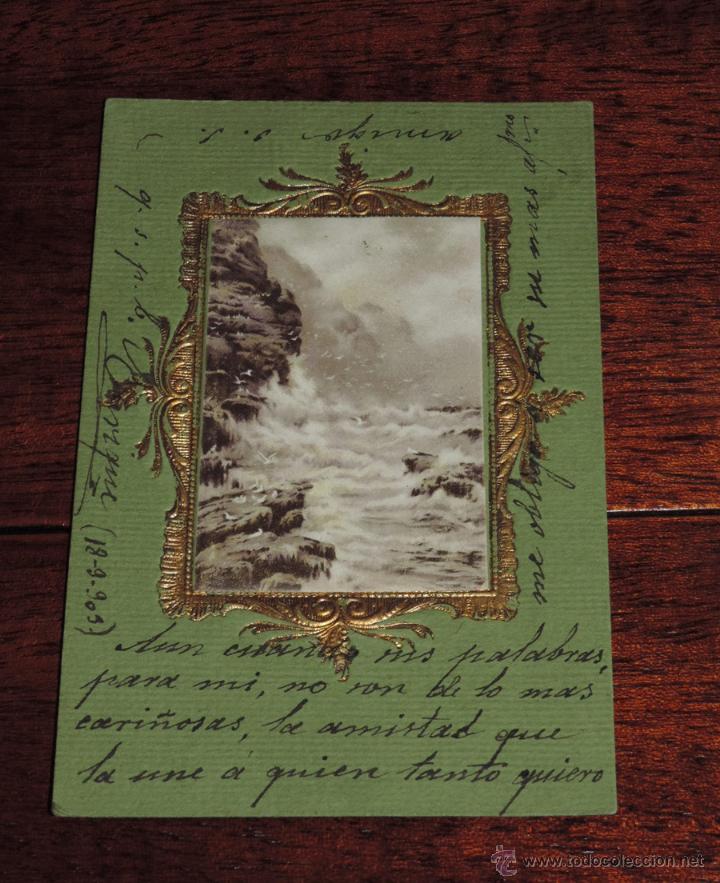 Aun cuando sus palabras,
para mi, no son de lo mas
cariñosas, la amistad que
la une á quien tanto quiero
me obliga ser su mas af.mo
amigo s. s.
q. s. p. b.
(18-9-903)
www.todocoleccion.net